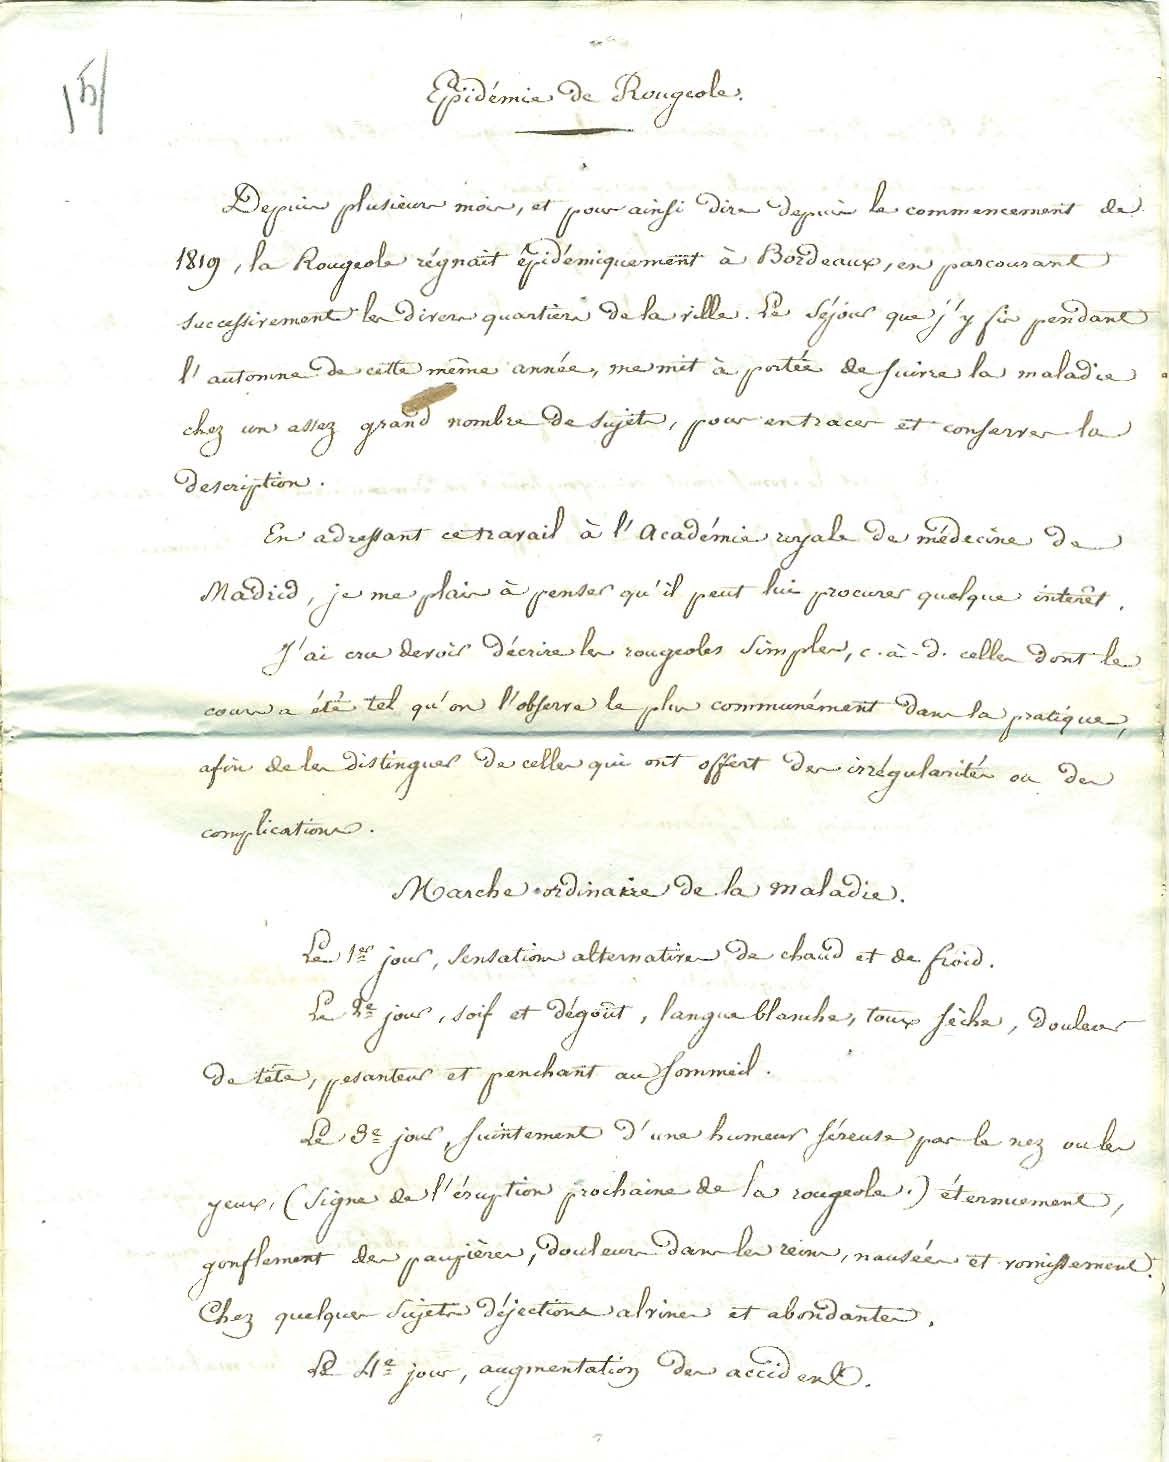 15/
Epidémie de Rougeole.
Depuis plusieurs mois, et pour ainsi dire depuis le commencement de
1819, la Rougeole régnait épidémiquement à Bordeaux, en parcourant
successivement les divers quartiers de la ville. Le séjour que j'y fis pendant
l'automne de cette même année, me mit à portée de suivre la maladie
chez un assez grand nombre de sujets, pour en tracer et conserver la
description.
En adressant ce travail à l'Académie royale de médecine de
Madrid, je me plais à penser qu'il peut lui procurer quelque intérêt.
J'ai cru devoir décrire les rougeoles simples, c.-à-d. celles dont le
cours a été tel qu'on l'observe le plus communément dans la pratique,
afin de les distinguer de celles qui ont offert des irrégularités ou des
complications.
Marche ordinaire de la maladie.
Le 1er jour, sensations alternatives de chaud et de froid.
Le 2e jour, soif et dégoût, langue blanche, toux sèche, douleur
de tête, pesanteur et penchant au sommeil.
Le 3e jour, suintement d'une humeur séreuse par le nez ou les
yeux, (signe de l'éruption prochaine de la rougeole.) éternuement,
gonflement des paupières, douleurs dans les reins, nausées et vomissement.
Chez quelques sujets déjections alvines et abondantes.
Le 4e jour, augmentation des accidents.